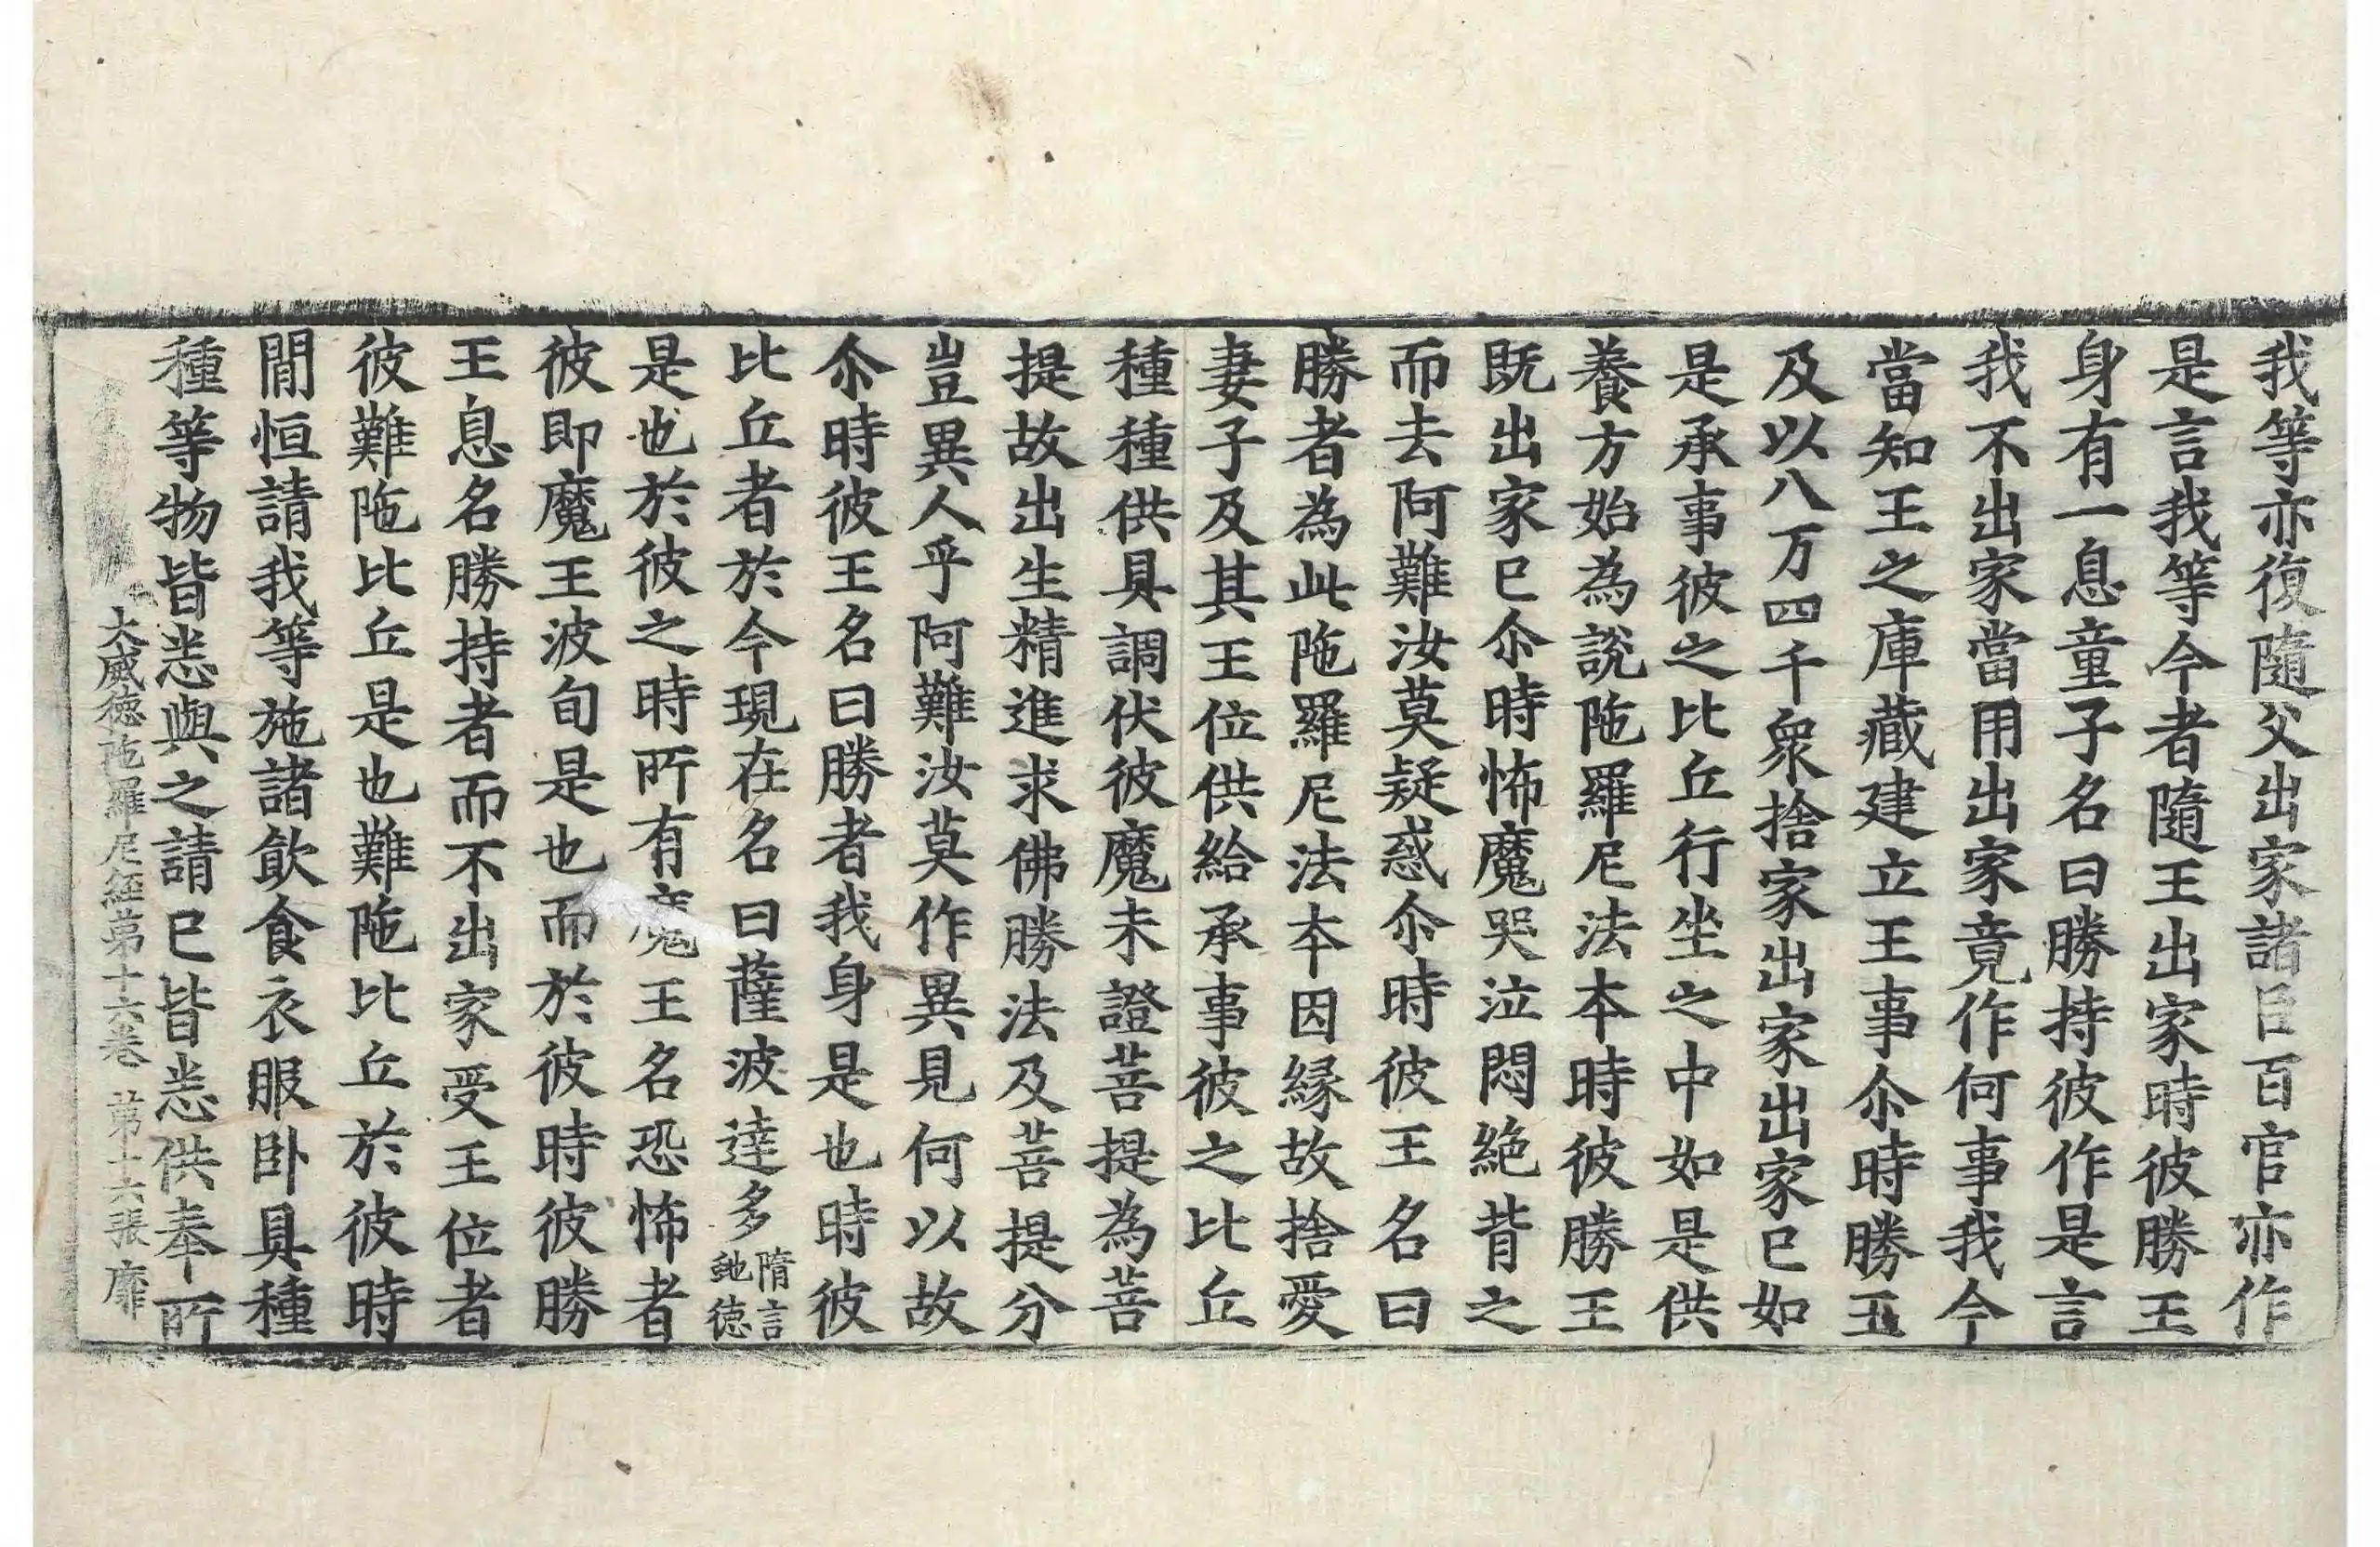 我等亦復隨父出家諸臣百官亦作
是言我等今者隨王出家時彼勝王
身有一息童子名曰勝持彼作是言
我不出家當用出家竟作何事我今
當知王之庫藏建立王事尒時勝王
及以八万四千衆捨家出家出家已如
是承事彼之比丘行坐之中如是供
養方始為說陁羅尼法本時彼勝王
既出家已尒時怖魔哭泣悶絶背之
而去阿難汝莫疑惑尒時彼王名曰
勝者為此陁羅尼法本因縁故捨愛
妻子及其王位供給承事彼之比丘
種種供具調伏彼魔未證菩提為菩
提故出生精進求佛勝法及菩提分
豈異人乎阿難汝莫作異見何以故
尒時彼王名曰勝者我身是也時彼
比丘者於今現在名曰薩波達多隋言虵德
是也於彼之時所有魔王名恐怖者
彼即魔王波旬是也而於彼時彼勝
王息名勝持者而不出家受王位者
彼難陁比丘是也難陁比丘於彼時
閒恒請我等施諸飲食衣服卧具種
種等物皆悉與之請已皆悉供奉所
大威德陁羅尼經第十六卷 第十六張 靡